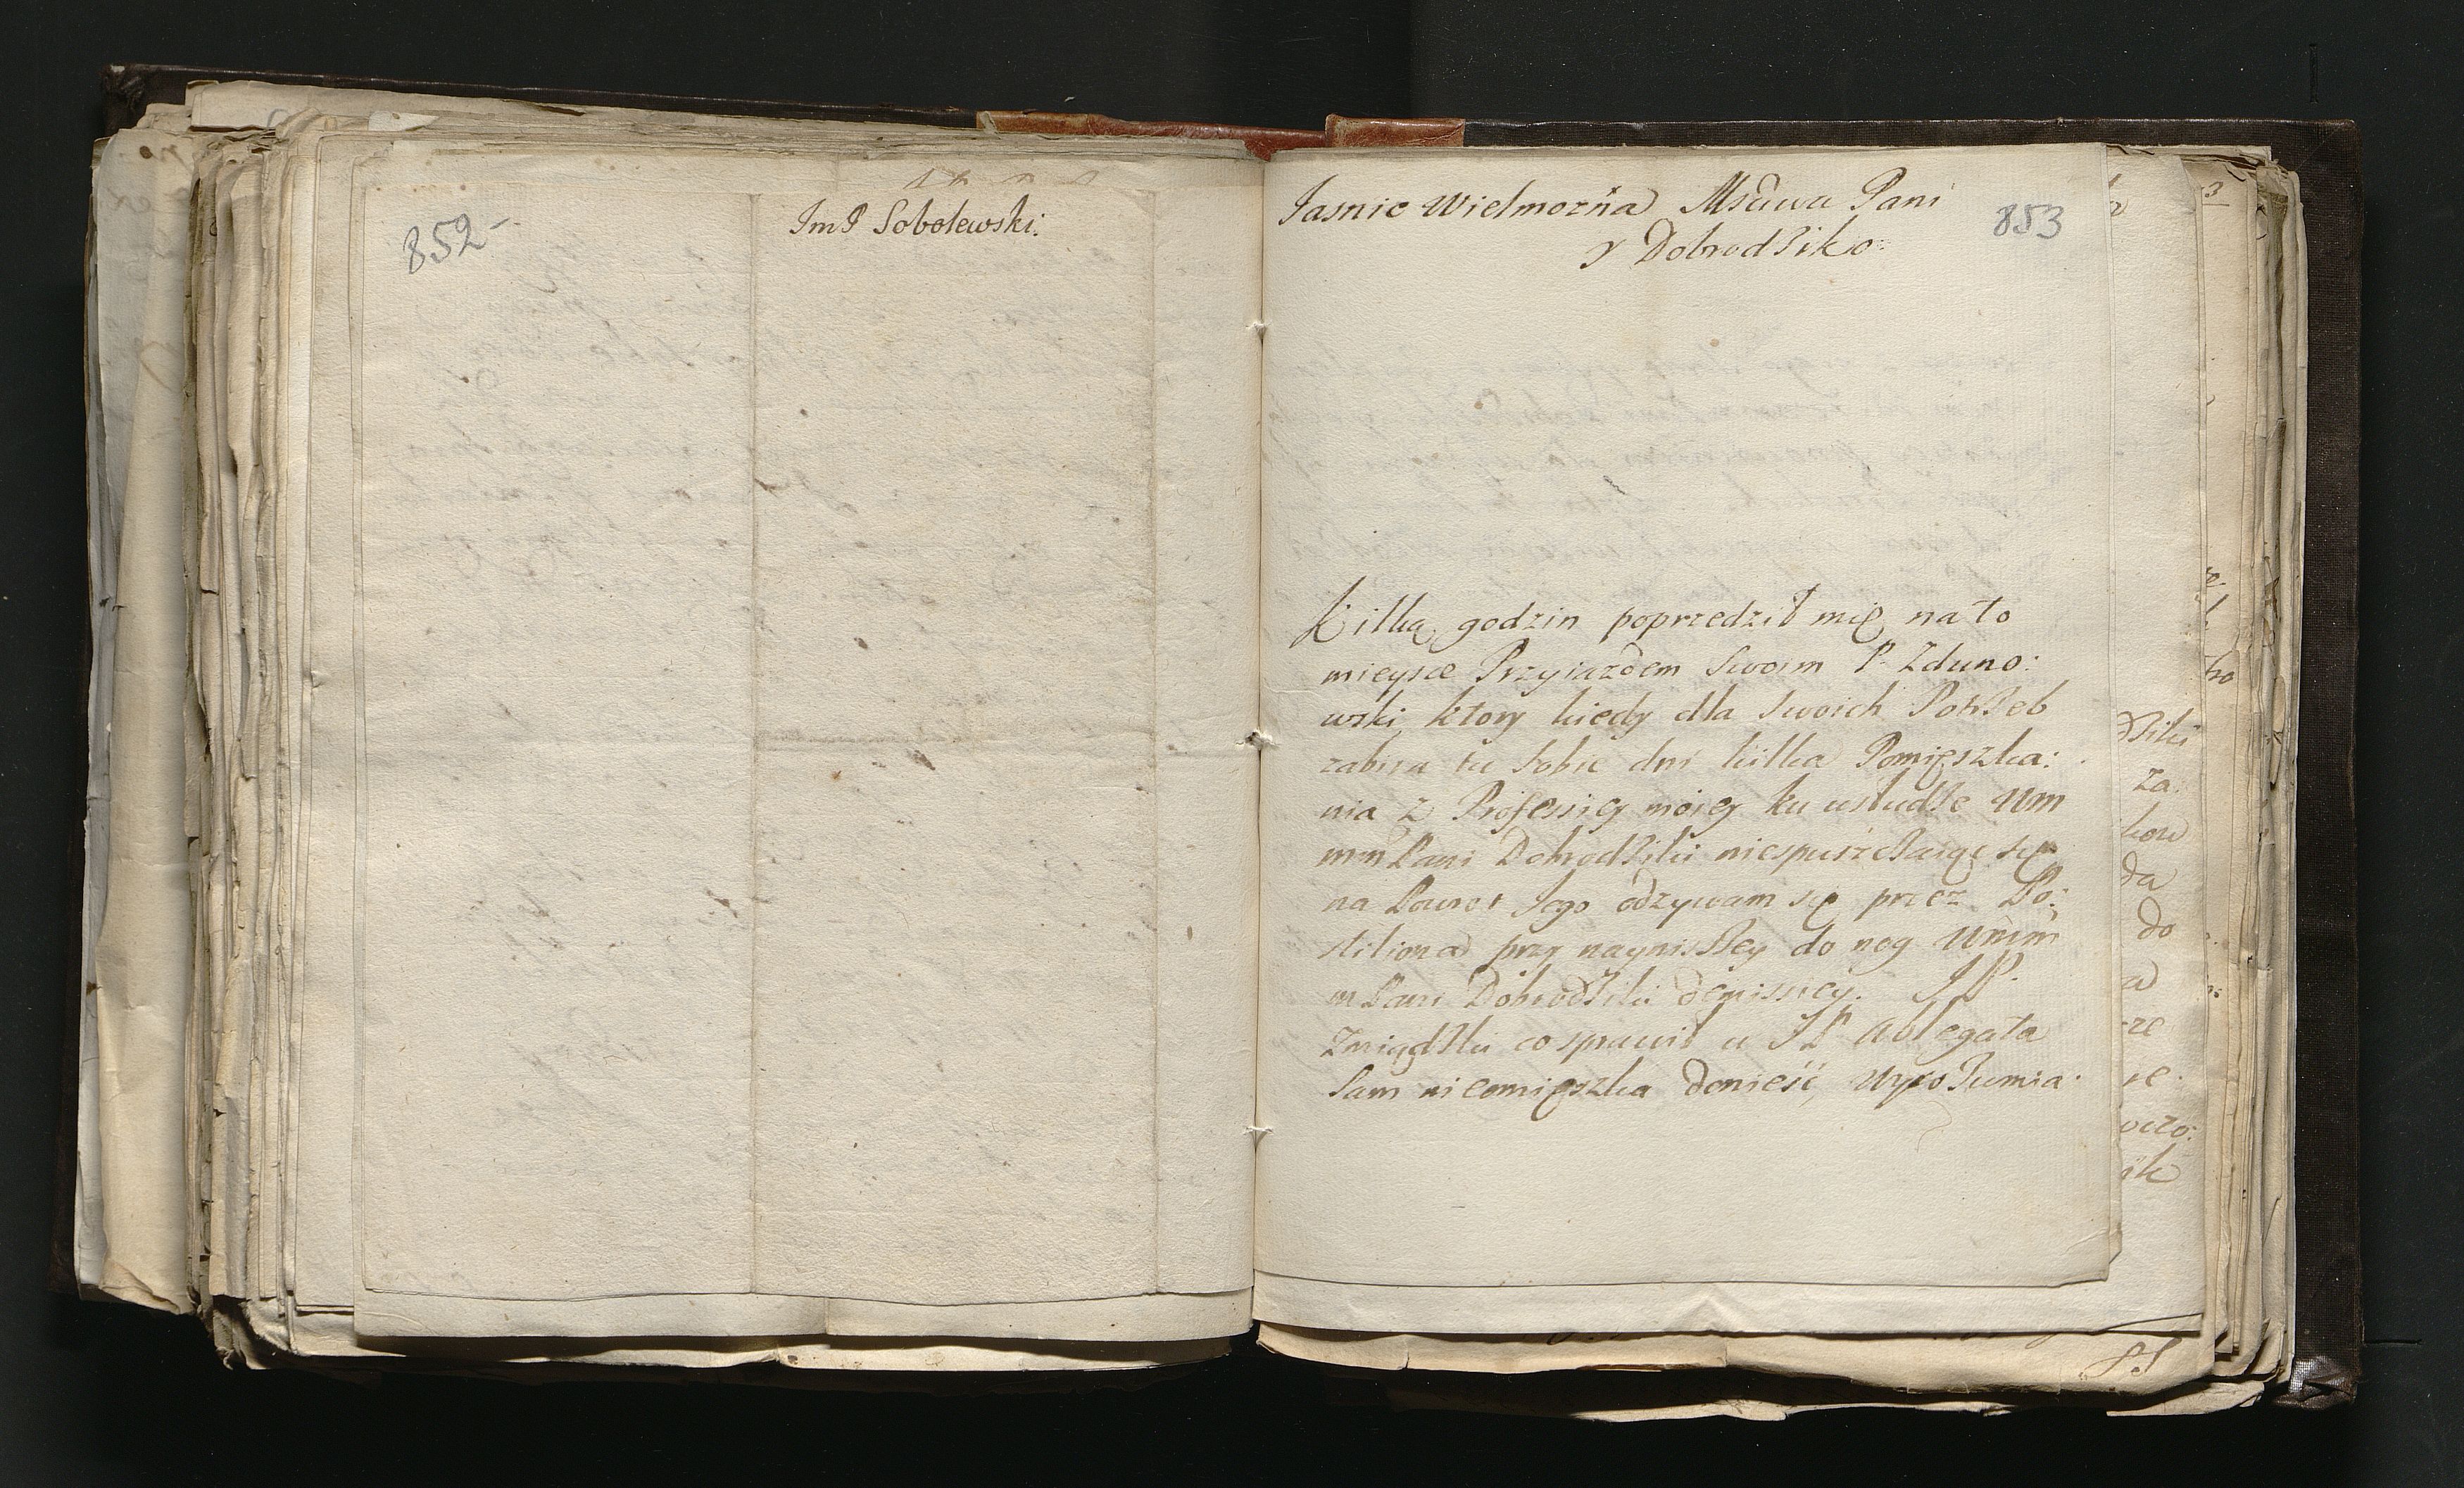 852
ImP Sobolewski:
853
Jasnie Wielmozna Msciwa Pani
y Dobrodziko:
Kilką godzin poprzedził mię na to
mieysce Przyiazdem Swoim P. Zduno:
wski, ktory kiedy dla Swoich Potrzeb
zabira tu sobie dni kilka Pomięszka:
nia z Professiey moiey ku usłudze Wm
mm Pani Dobrodziki niespuszczaiąc się
na Powrot Jego odzywam się przez Po:
stiliona przy nayniszszey do nog Wmm
m Pani Dobrodziki demissiey. JP.
Zmigdzki co sprawił u JP Ablegata
Sam nieomięszka donieść, wyrozumia: